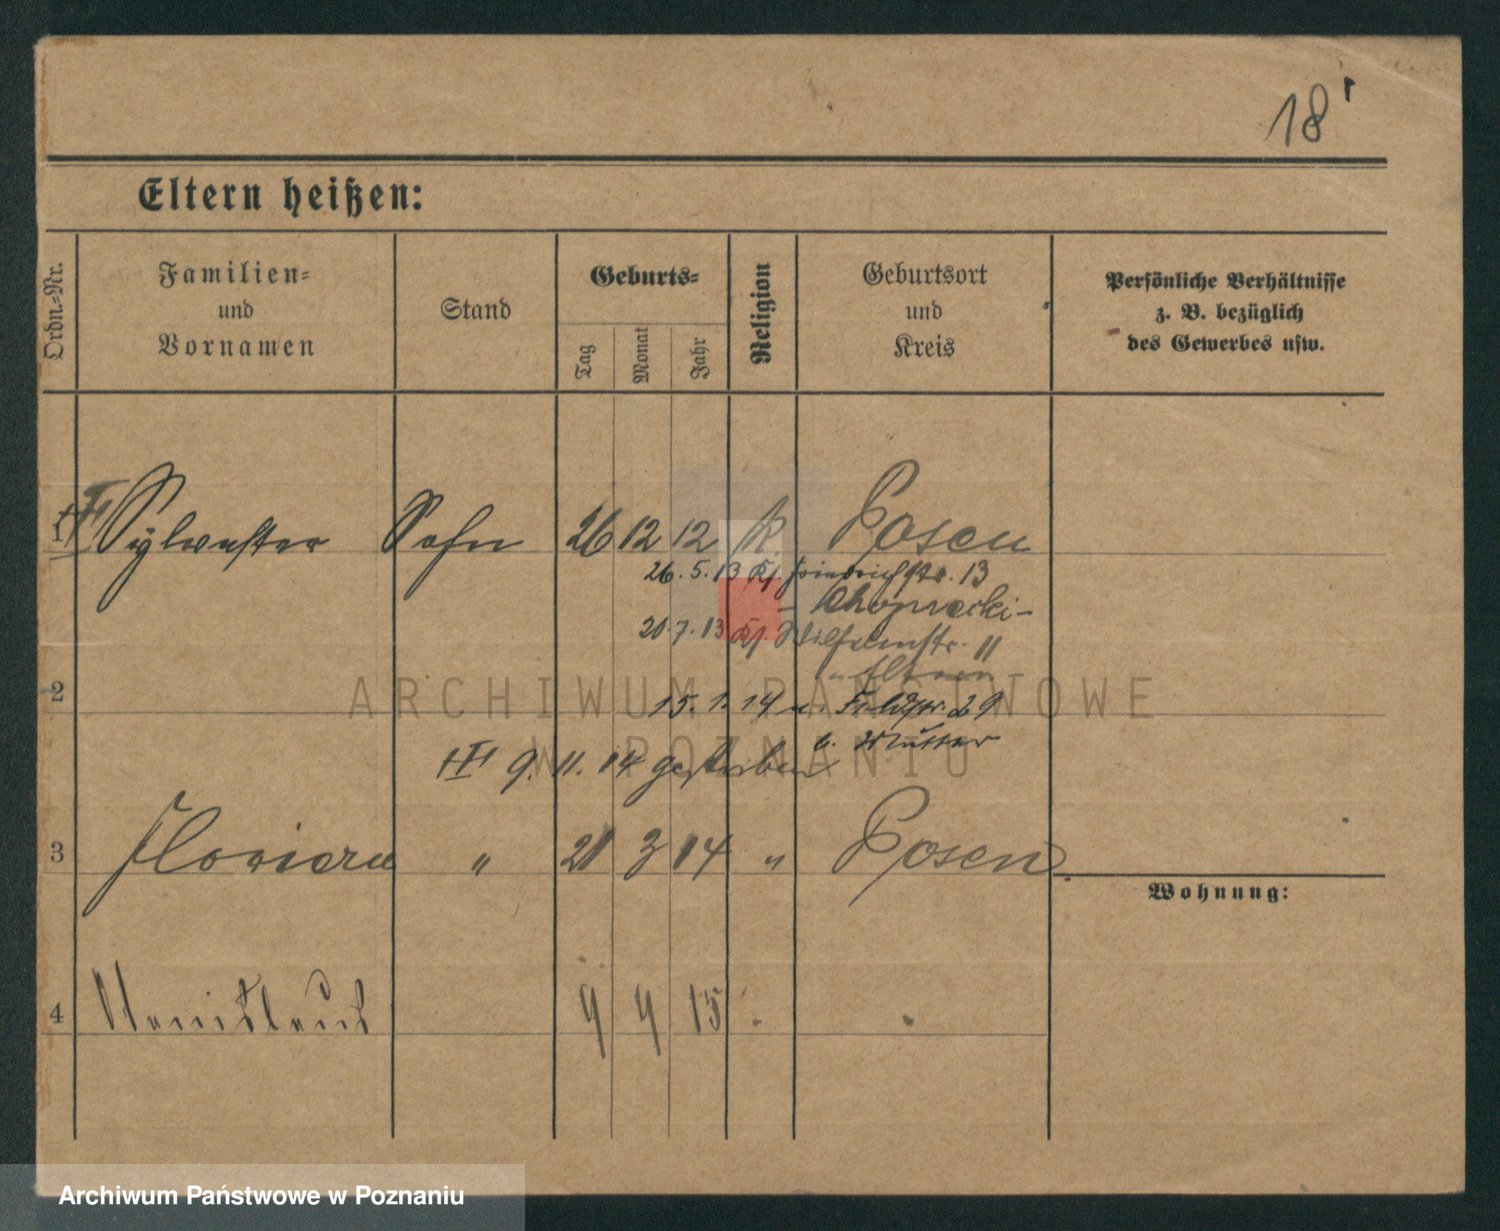 18
Eltern heißen:
Ordn.-Nr.
Familien-
und
Vornamen
Stand
Geburts-
Tag
Monat
Jahr
Religion
Geburtsort
und
Kreis
Persönliche Verhältnisse
z. B. bezüglich
des Gewerbes usw.
1 Sylwester Sohn 26 12 12 k. Posen
26.5.13 Friedrichstr. 13
20.7.13 Wilhelmstr. 11
Eltern
2
15.1.14 Feldstr. 29
b. Mutter
9.11.14 gestorben
3 Florian " 21 3 14 " Posen
Wohnung:
4 Stanislaus 9 4 15
ARCHIWUM PAŃSTWOWE
W POZNANIU
Archiwum Państwowe w Poznaniu